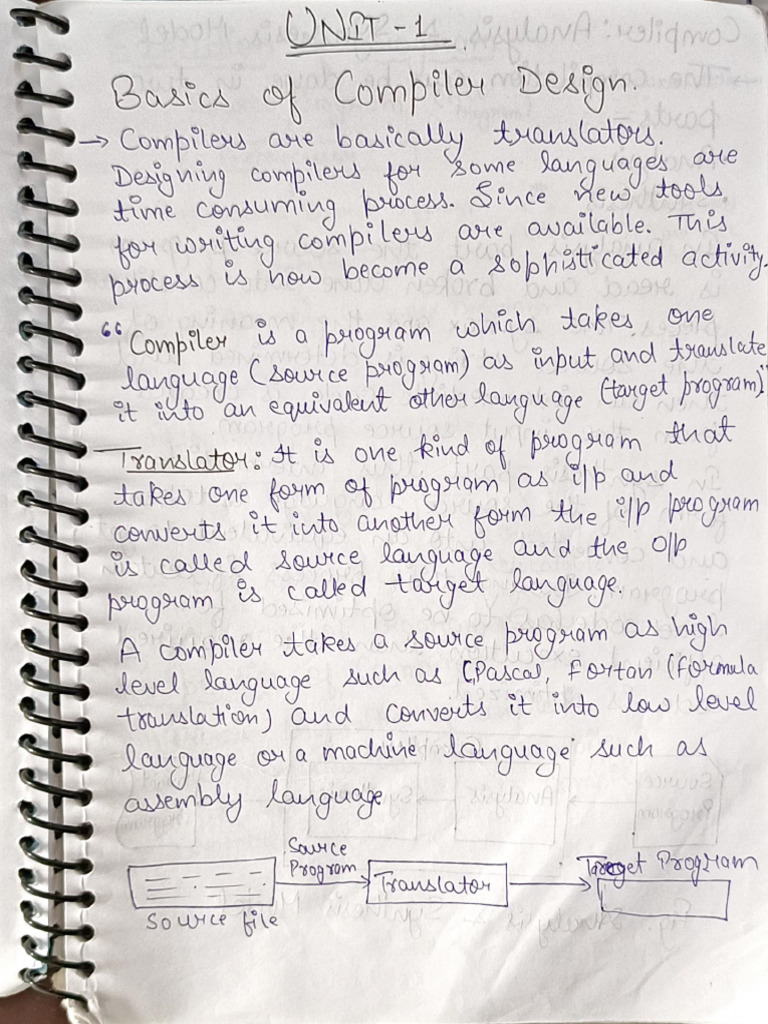 UNIT-1
Basics of Compiler Design.
→ Compilers are basically translators.
Designing compilers for some languages are
time consuming process. Since new tools
for writing compilers are available. This
process is now become a sophisticated activity.
“ Compiler is a program which takes one
language (source program) as input and translate
it into an equivalent other language (target program)”
Translator: It is one kind of program that
takes one form of program as i/p and
converts it into another form the i/p program
is called source language and the o/p
program is called target language.
A compiler takes a source program as high
level language such as (Pascal, Fortan (formula
translation) and converts it into low level
language or a machine language such as
assembly language
Source
Program
Target Program
Translator
Source file